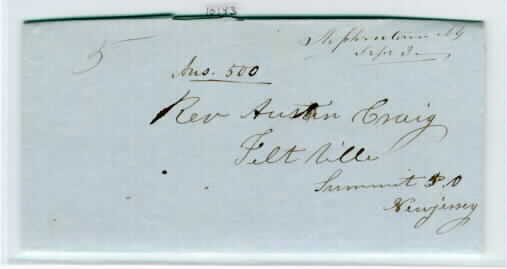 10183
5
Stephentown NY
Sept 3
Ans. 500
Rev Austin Craig
Felt Ville
Summit P.O
New jersey